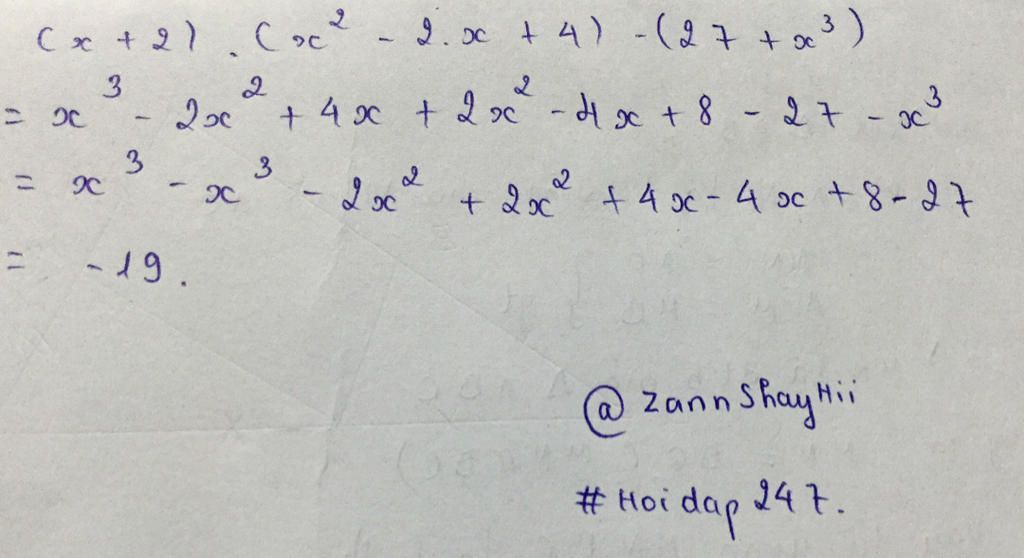 (x + 2) . (x² - 2.x + 4) - (27 + x³)
= x³ - 2x² + 4x + 2x² - 4x + 8 - 27 - x³
= x³ - x³ - 2x² + 2x² + 4x - 4x + 8 - 27
= -19.
@ zann Shay Hii
# Hoi dap 247.